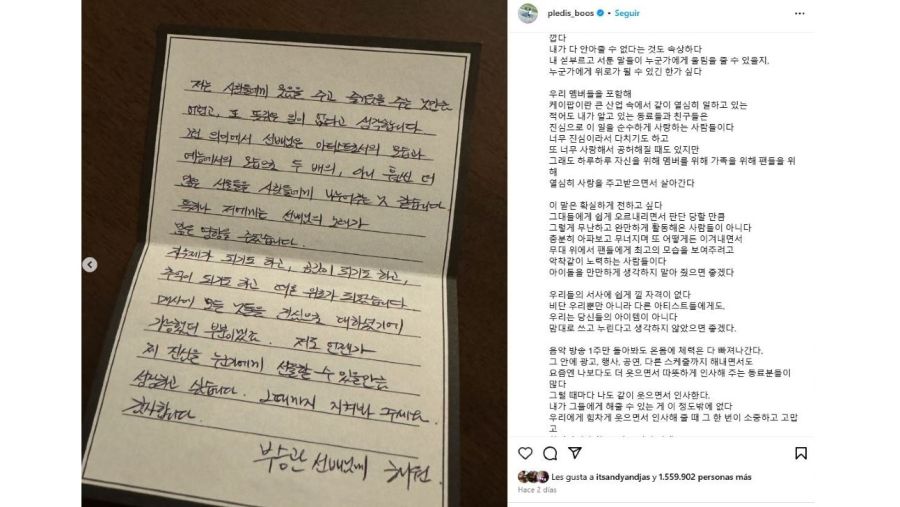 저는 사람들에게 웃음을 주고 즐거움을 주는 것만큼
어렵고, 또 뜻깊은 일이 없다고 생각합니다
그런 의미에서 선배님은 아티스트로서의 모습과
예능에서의 모습으로 두 배의, 아니 훨씬 더
많은 선물들을 사람들에게 나누어주는 것 같습니다
특히나 저에게는 선배님의 노래가
많은 영향을 주었습니다.
되기도 하고, 공감이 되기도 하고,
추억이 되기도 하고 때론 위로가 되었습니다
매사에 모든 것들을 진심으로 대하셨기에
가능했던 부분이겠죠. 저도 언젠가
제 진심을 누군가에게 선물할 수 있을만큼
성장하고 싶습니다. 그때까지 지켜봐 주세요.
감사합니다.
부승관 선배님께
pledis_boos • Seguir
깝다
내가 다 안아줄 수 없다는 것도 속상하다
내 섣부르고 서툰 말들이 누군가에게 울림을 줄 수 있을지,
누군가에게 위로가 될 수 있긴 한가 싶다
우리 멤버들을 포함해
케이팝이란 큰 산업 속에서 같이 열심히 일하고 있는
적어도 내가 알고 있는 동료들과 친구들은
진심으로 이 일을 순수하게 사랑하는 사람들이다
너무 진심이라서 다치기도 하고
또 너무 사랑해서 공허해질 때도 있지만
그래도 하루하루 자신을 위해 멤버를 위해 가족을 위해 팬들을 위
해
열심히 사랑을 주고받으면서 살아간다
이 말은 확실하게 전하고 싶다
그대들에게 쉽게 오르내리면서 판단 당할 만큼
그렇게 무난하고 완만하게 활동해온 사람들이 아니다
충분히 아파보고 무너지며 또 어떻게든 이겨내면서
무대 위에서 팬들에게 최고의 모습을 보여주려고
악착같이 노력하는 사람들이다
아이돌을 만만하게 생각하지 말아 줬으면 좋겠다
우리들의 서사에 쉽게 낄 자격이 없다
비단 우리뿐만 아니라 다른 아티스트들에게도.
우리는 당신들의 아이템이 아니다
맘대로 쓰고 누린다고 생각하지 않았으면 좋겠다.
음악 방송 1주만 돌아봐도 온몸에 체력은 다 빠져나간다.
그 안에 광고, 행사, 공연, 다른 스케줄까지 해내면서도
요즘엔 나보다도 더 웃으면서 따뜻하게 인사해 주는 동료분들이
많다
그럴 때마다 나도 같이 웃으면서 인사한다.
내가 그들에게 해줄 수 있는 게 이 정도밖에 없다
우리에게 힘차게 웃으면서 인사해 줄 때 그 한 번이 소중하고 고맙
고
Les gusta a itsandyandjas y 1.559.902 personas más
Hace 2 días